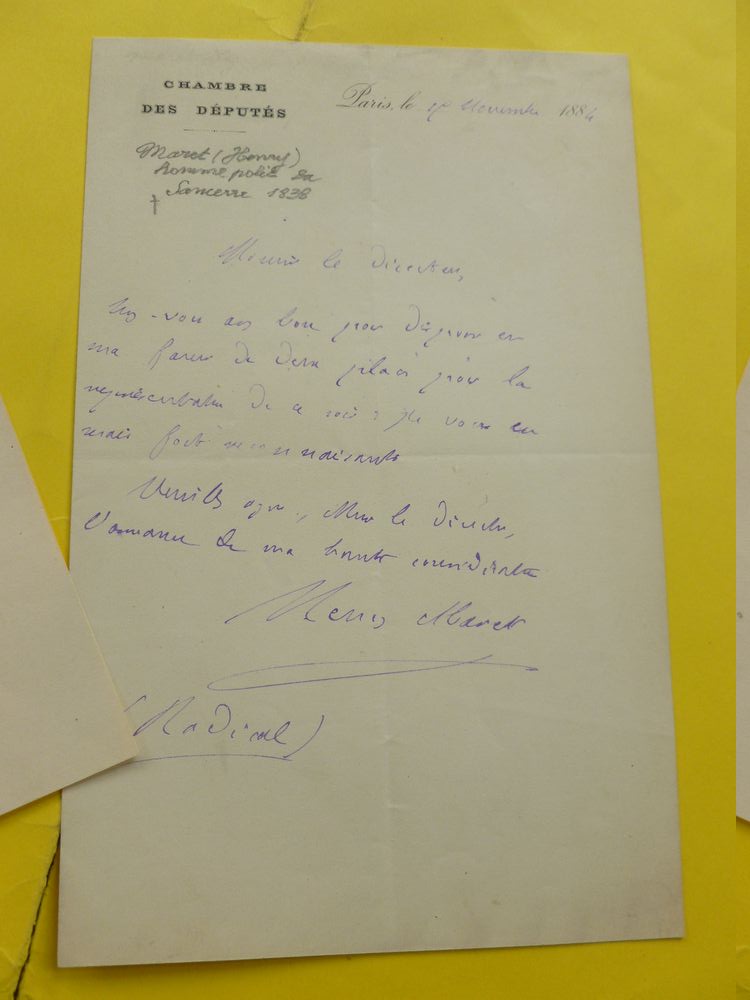 CHAMBRE
DES DÉPUTÉS
Paris, le novembre 1884
Maret (Henry)
homme polit. de
Sancerre 1838
†
Monsieur le Directeur,
-vous assez bon pour disposer en
ma faveur de deux places pour la
représentation de ce soir ? Je vous en
serais fort reconnaissant
Veuillez agréer, Monsieur le Directeur,
l'assurance de ma haute considération
Henry Maret
(Radical)